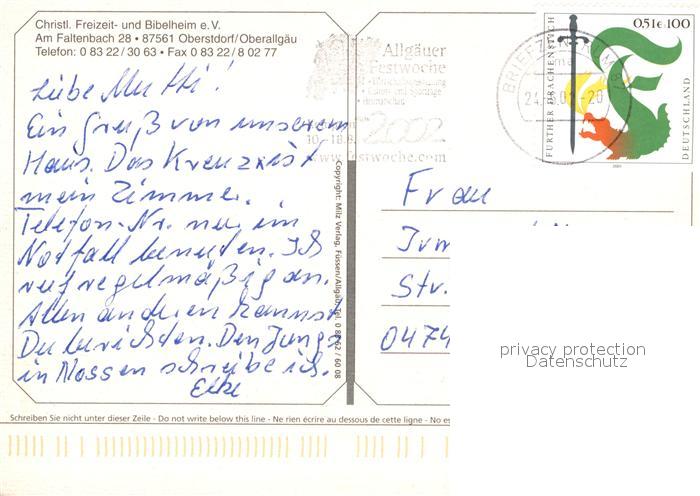 Christl. Freizeit- und Bibelheim e.V.
Am Faltenbach 28 • 87561 Oberstdorf/Oberallgäu
Telefon: 0 83 22/30 63 • Fax 0 83 22/8 02 77
Liebe Mutti!
Ein Gruß von unserem
Haus. Das Kreuz ist
mein Zimmer.
Telefon-Nr. nur im
Notfall benutzen. Ich
ruf regelmäßig an.
Allen anderen kannst
Du berichten. Den Jungs
in Nossen schreibe ich.
Elke
Copyright: Milz Verlag, Füssen/Allgäu, Tel. 0 83 62 / 60 08
Allgäuer
Festwoche
2002
www.festwoche.com
BRIEFZENTRUM
0,51€ 100
FURTHER DRACHENSTICH
DEUTSCHLAND
2001
Frau
Str.
0474
privacy protection
Datenschutz
Schreiben Sie nicht unter dieser Zeile - Do not write below this line - Ne rien écrire au dessous de cette ligne - No es